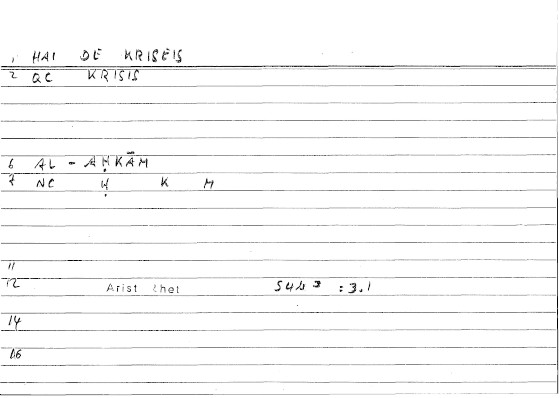 1 HAI DE KRISEIS
2 QC KRISIS
6 AL - AḤKĀM
7 NC Ḥ K M
11
12 Arist rhet 54b3 : 3.1
14
16